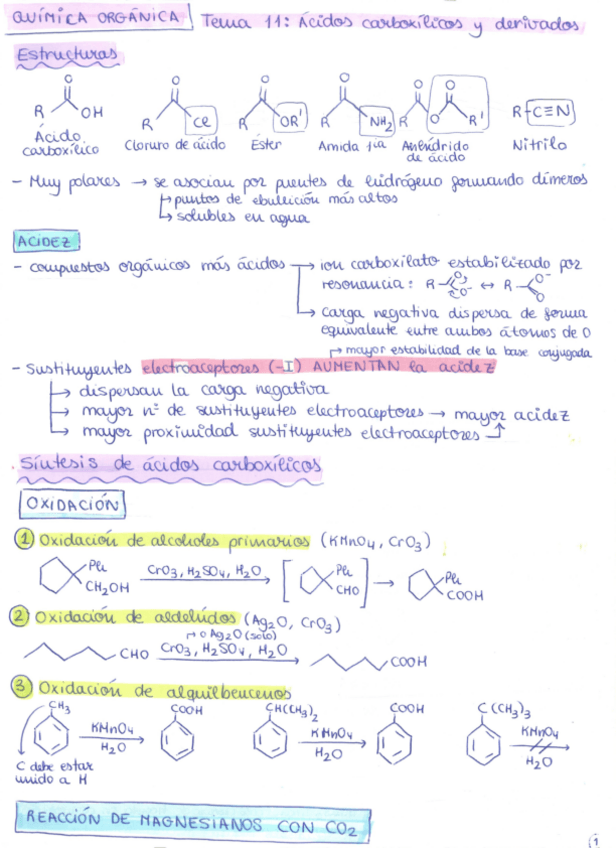 QUÍMICA ORGÁNICA Tema 11: Ácidos carboxílicos y derivados
Estructuras
O O O O O O
R OH R Cl R OR' R NH2 R O R' R-C≡N
Ácido carboxílico Cloruro de ácido Éster Amida 1ia Anhídrido de ácido Nitrilo
- Muy polares → se asocian por puentes de hidrógeno formando dímeros
↳ puntos de ebullición más altos
↳ solubles en agua
ACIDEZ
- compuestos orgánicos más ácidos → ion carboxilato estabilizado por
resonancia: R-C O O⁻ ↔ R-C O⁻ O
↳ carga negativa dispersa de forma
equivalente entre ambos átomos de O
↳ mayor estabilidad de la base conjugada
- Sustituyentes electroaceptores (-I) AUMENTAN la acidez
↳ dispersan la carga negativa
↳ mayor nº de sustituyentes electroaceptores → mayor acidez
↳ mayor proximidad sustituyentes electroaceptores
Síntesis de ácidos carboxílicos
OXIDACIÓN
1 Oxidación de alcoholes primarios (KMnO4, CrO3)
Ph CH2OH CrO3, H2SO4, H2O [ Ph CHO ] → Ph COOH
2 Oxidación de aldehídos (Ag2O, CrO3)
↳ o Ag2O (solo)
CHO CrO3, H2SO4, H2O COOH
3 Oxidación de alquilbencenos
CH3 COOH CH(CH3)2 COOH C(CH3)3
KMnO4 KMnO4 KMnO4
H2O H2O H2O
C debe estar
unido a H
REACCIÓN DE MAGNESIANOS CON CO2
1